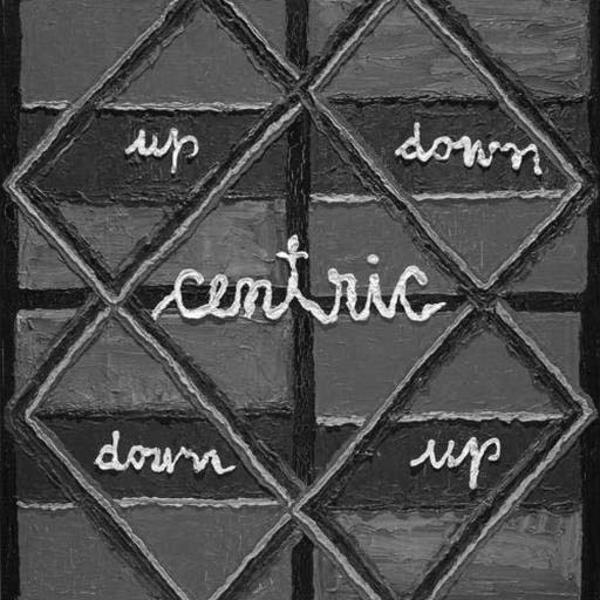 up down
centric
down up